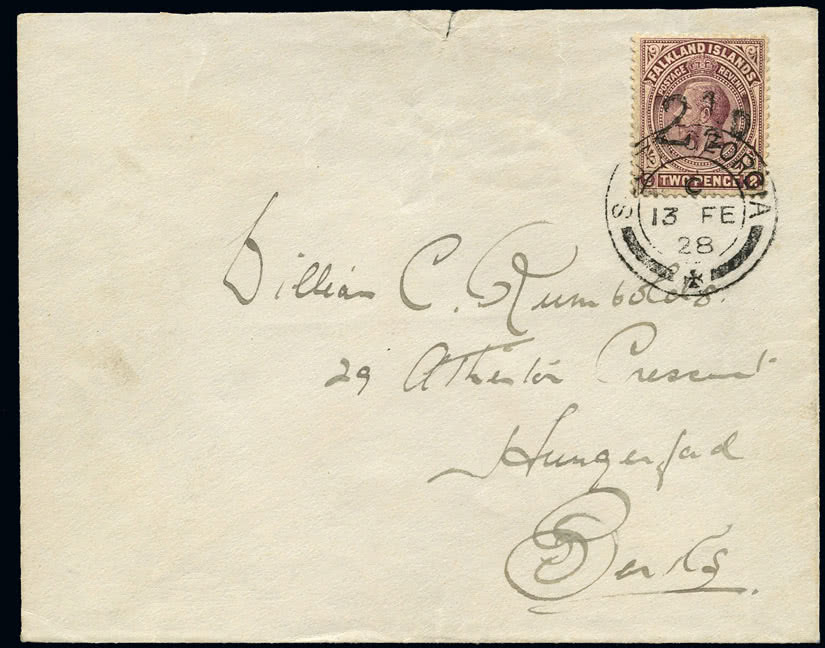 FALKLAND ISLANDS
POSTAGE REVENUE
2½D
TWO PENCE
SOUTH GEORGIA
C
13 FE
28
William C. Rumbolds
29 Atherton Crescent
Hungerford
Berks.